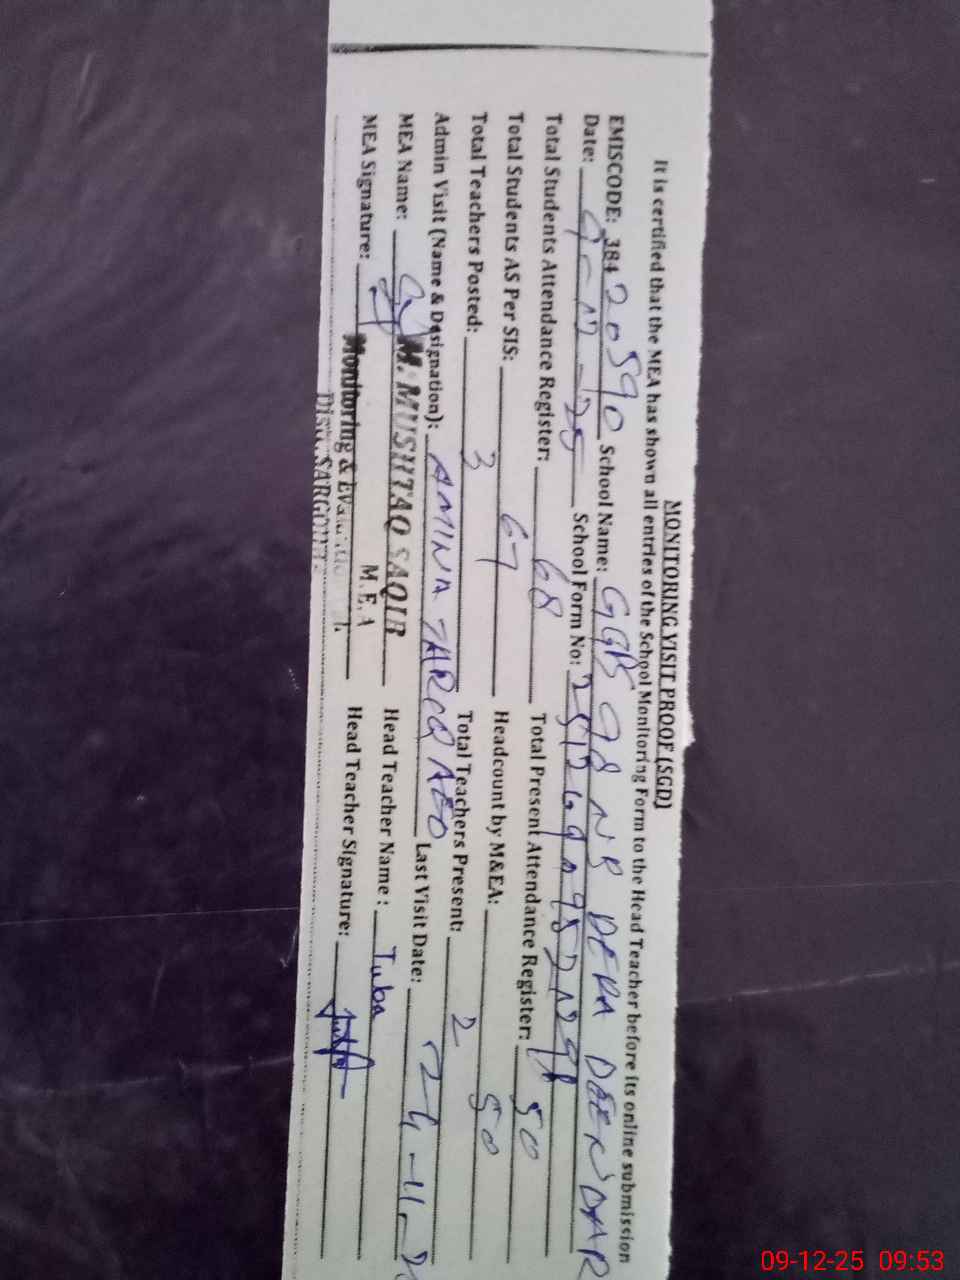 MONITORING VISIT PROOF (SGD)
It is certified that the MEA has shown all entries of the School Monitoring Form to the Head Teacher before its online submission
EMISCODE: 38420590 School Name: GGPS 98 NB DERA DEENDAR
Date: 9-12-25 School Form No:
Total Students Attendance Register: 68 Total Present Attendance Register: 50
Total Students AS Per SIS: 67 Headcount by M&EA: 50
Total Teachers Posted: 3 Total Teachers Present: 2
Admin Visit (Name & Designation): AMINA TARIQ AEO Last Visit Date:
MEA Name: M. MUSHTAQ SAQIB Head Teacher Name: Tuba
M.E.A
MEA Signature: Monitoring & Head Teacher Signature:
Distt. SARGODHA
09-12-25 09:53